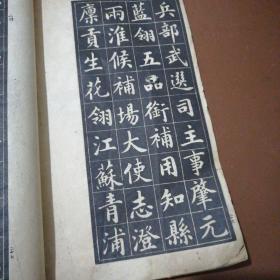 兵部武選司主事肇元
藍翎五品銜補用知縣
雨淮候補場大使志澄
廪貢生花翎江蘇青浦